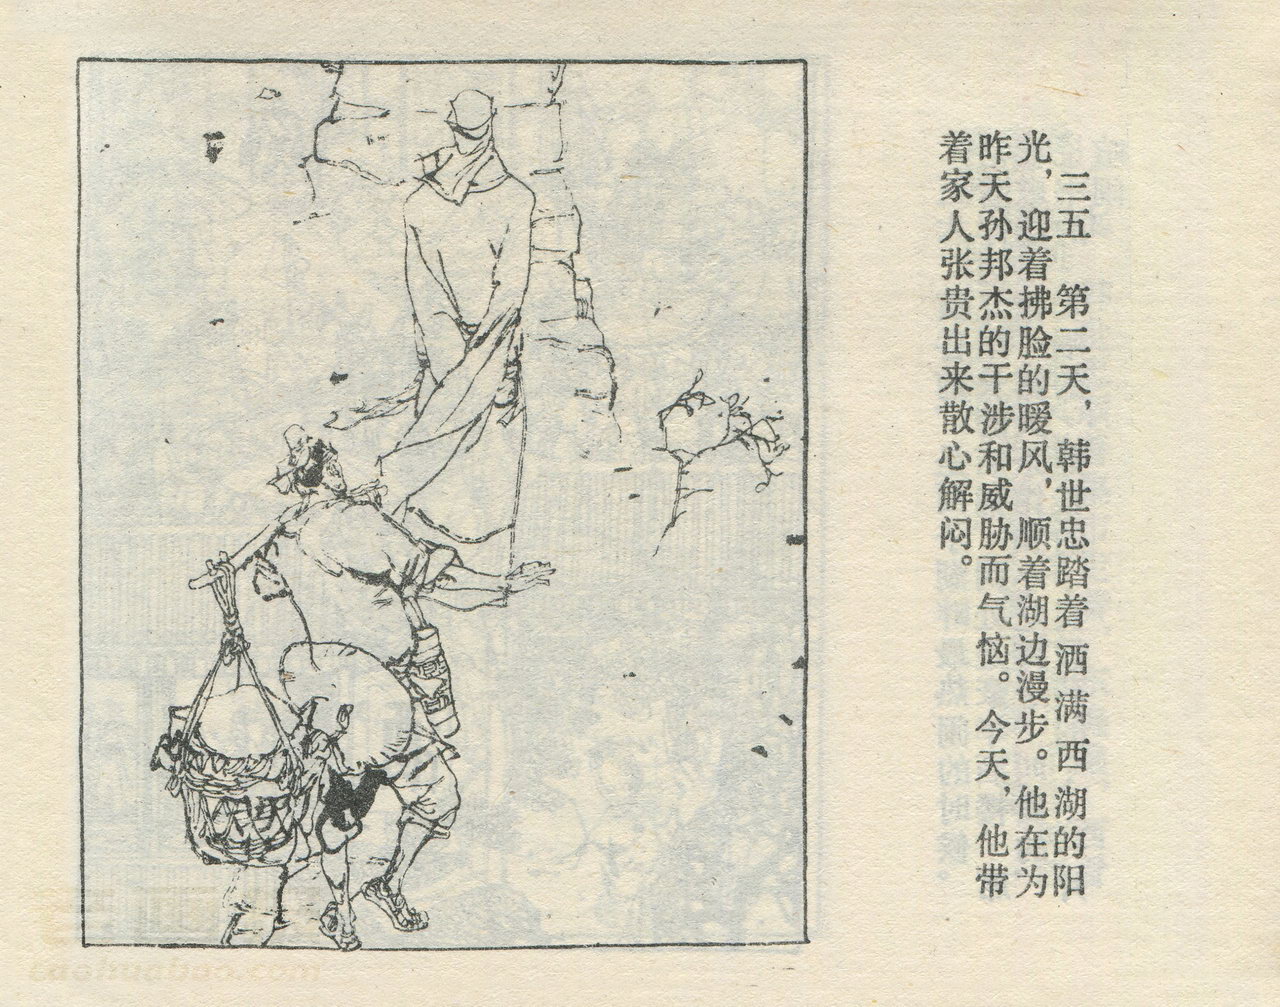 三五　第二天，韩世忠踏着洒满西湖的阳
光，迎着拂脸的暖风，顺着湖边漫步。他在为
昨天孙邦杰的干涉和威胁而气恼。今天，他带
着家人张贵出来散心解闷。
caohuabao.com